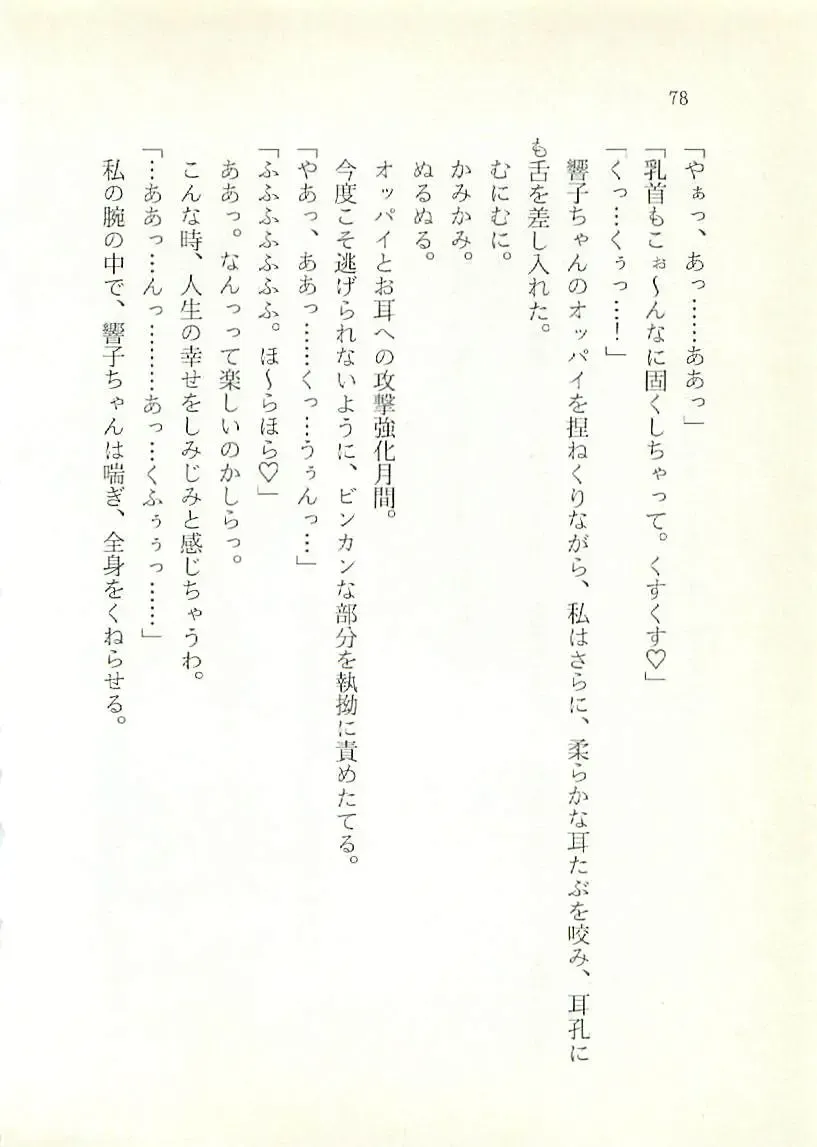 78
「やぁっ、あっ……ああっ」
「乳首もこぉ～んなに固くしちゃって。くすくす♡」
「くっ…くぅっ…！」
響子ちゃんのオッパイを捏ねくりながら、私はさらに、柔らかな耳たぶを咬み、耳孔に
も舌を差し入れた。
むにむに。
かみかみ。
ぬるぬる。
オッパイとお耳への攻撃強化月間。
今度こそ逃げられないように、ビンカンな部分を執拗に責めたてる。
「やあっ、ああっ……くっ…うぅんっ…」
「ふふふふふふふ。ほ～らほら♡」
ああっ。なんって楽しいのかしらっ。
こんな時、人生の幸せをしみじみと感じちゃうわ。
「…ああっ…んっ………あっ…くふぅぅっ……」
私の腕の中で、響子ちゃんは喘ぎ、全身をくねらせる。